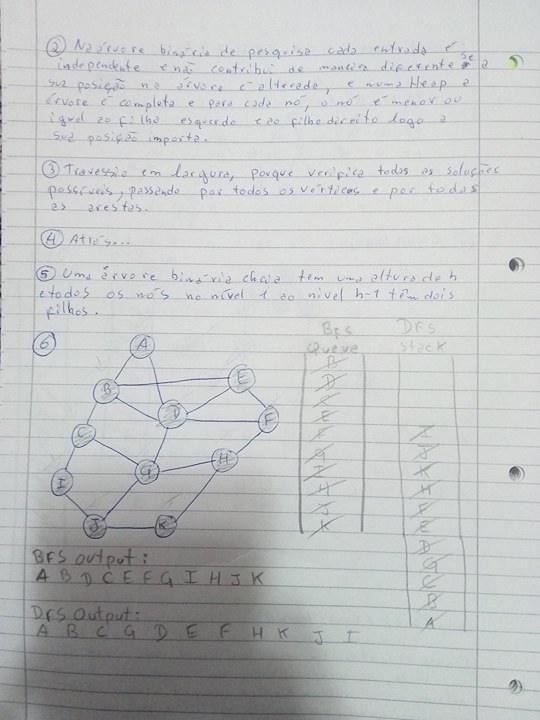 ② Na árvore binária de pesquisa cada entrada é
independente e não contribui de maneira diferente se a
sua posição na árvore é alterada, e numa Heap a
árvore é completa e para cada nó, o nó é menor ou
igual ao filho esquerdo e ao filho direito logo a
sua posição importa.
③ Travessia em largura, porque verifica todas as soluções
possíveis, passando por todos os vértices e por todas
as arestas.
④ Atrás...
⑤ Uma árvore binária cheia tem uma altura de h
e todos os nós no nível 1 ao nível h-1 têm dois
filhos.
⑥
A
B
E
D
F
C
G
H
I
J
K
BFS
Queue
B
D
C
E
F
G
I
H
J
K
DFS
Stack
I
J
K
H
F
E
D
G
C
B
A
BFS output:
A B D C E F G I H J K
DFS Output:
A B C G D E F H K J I